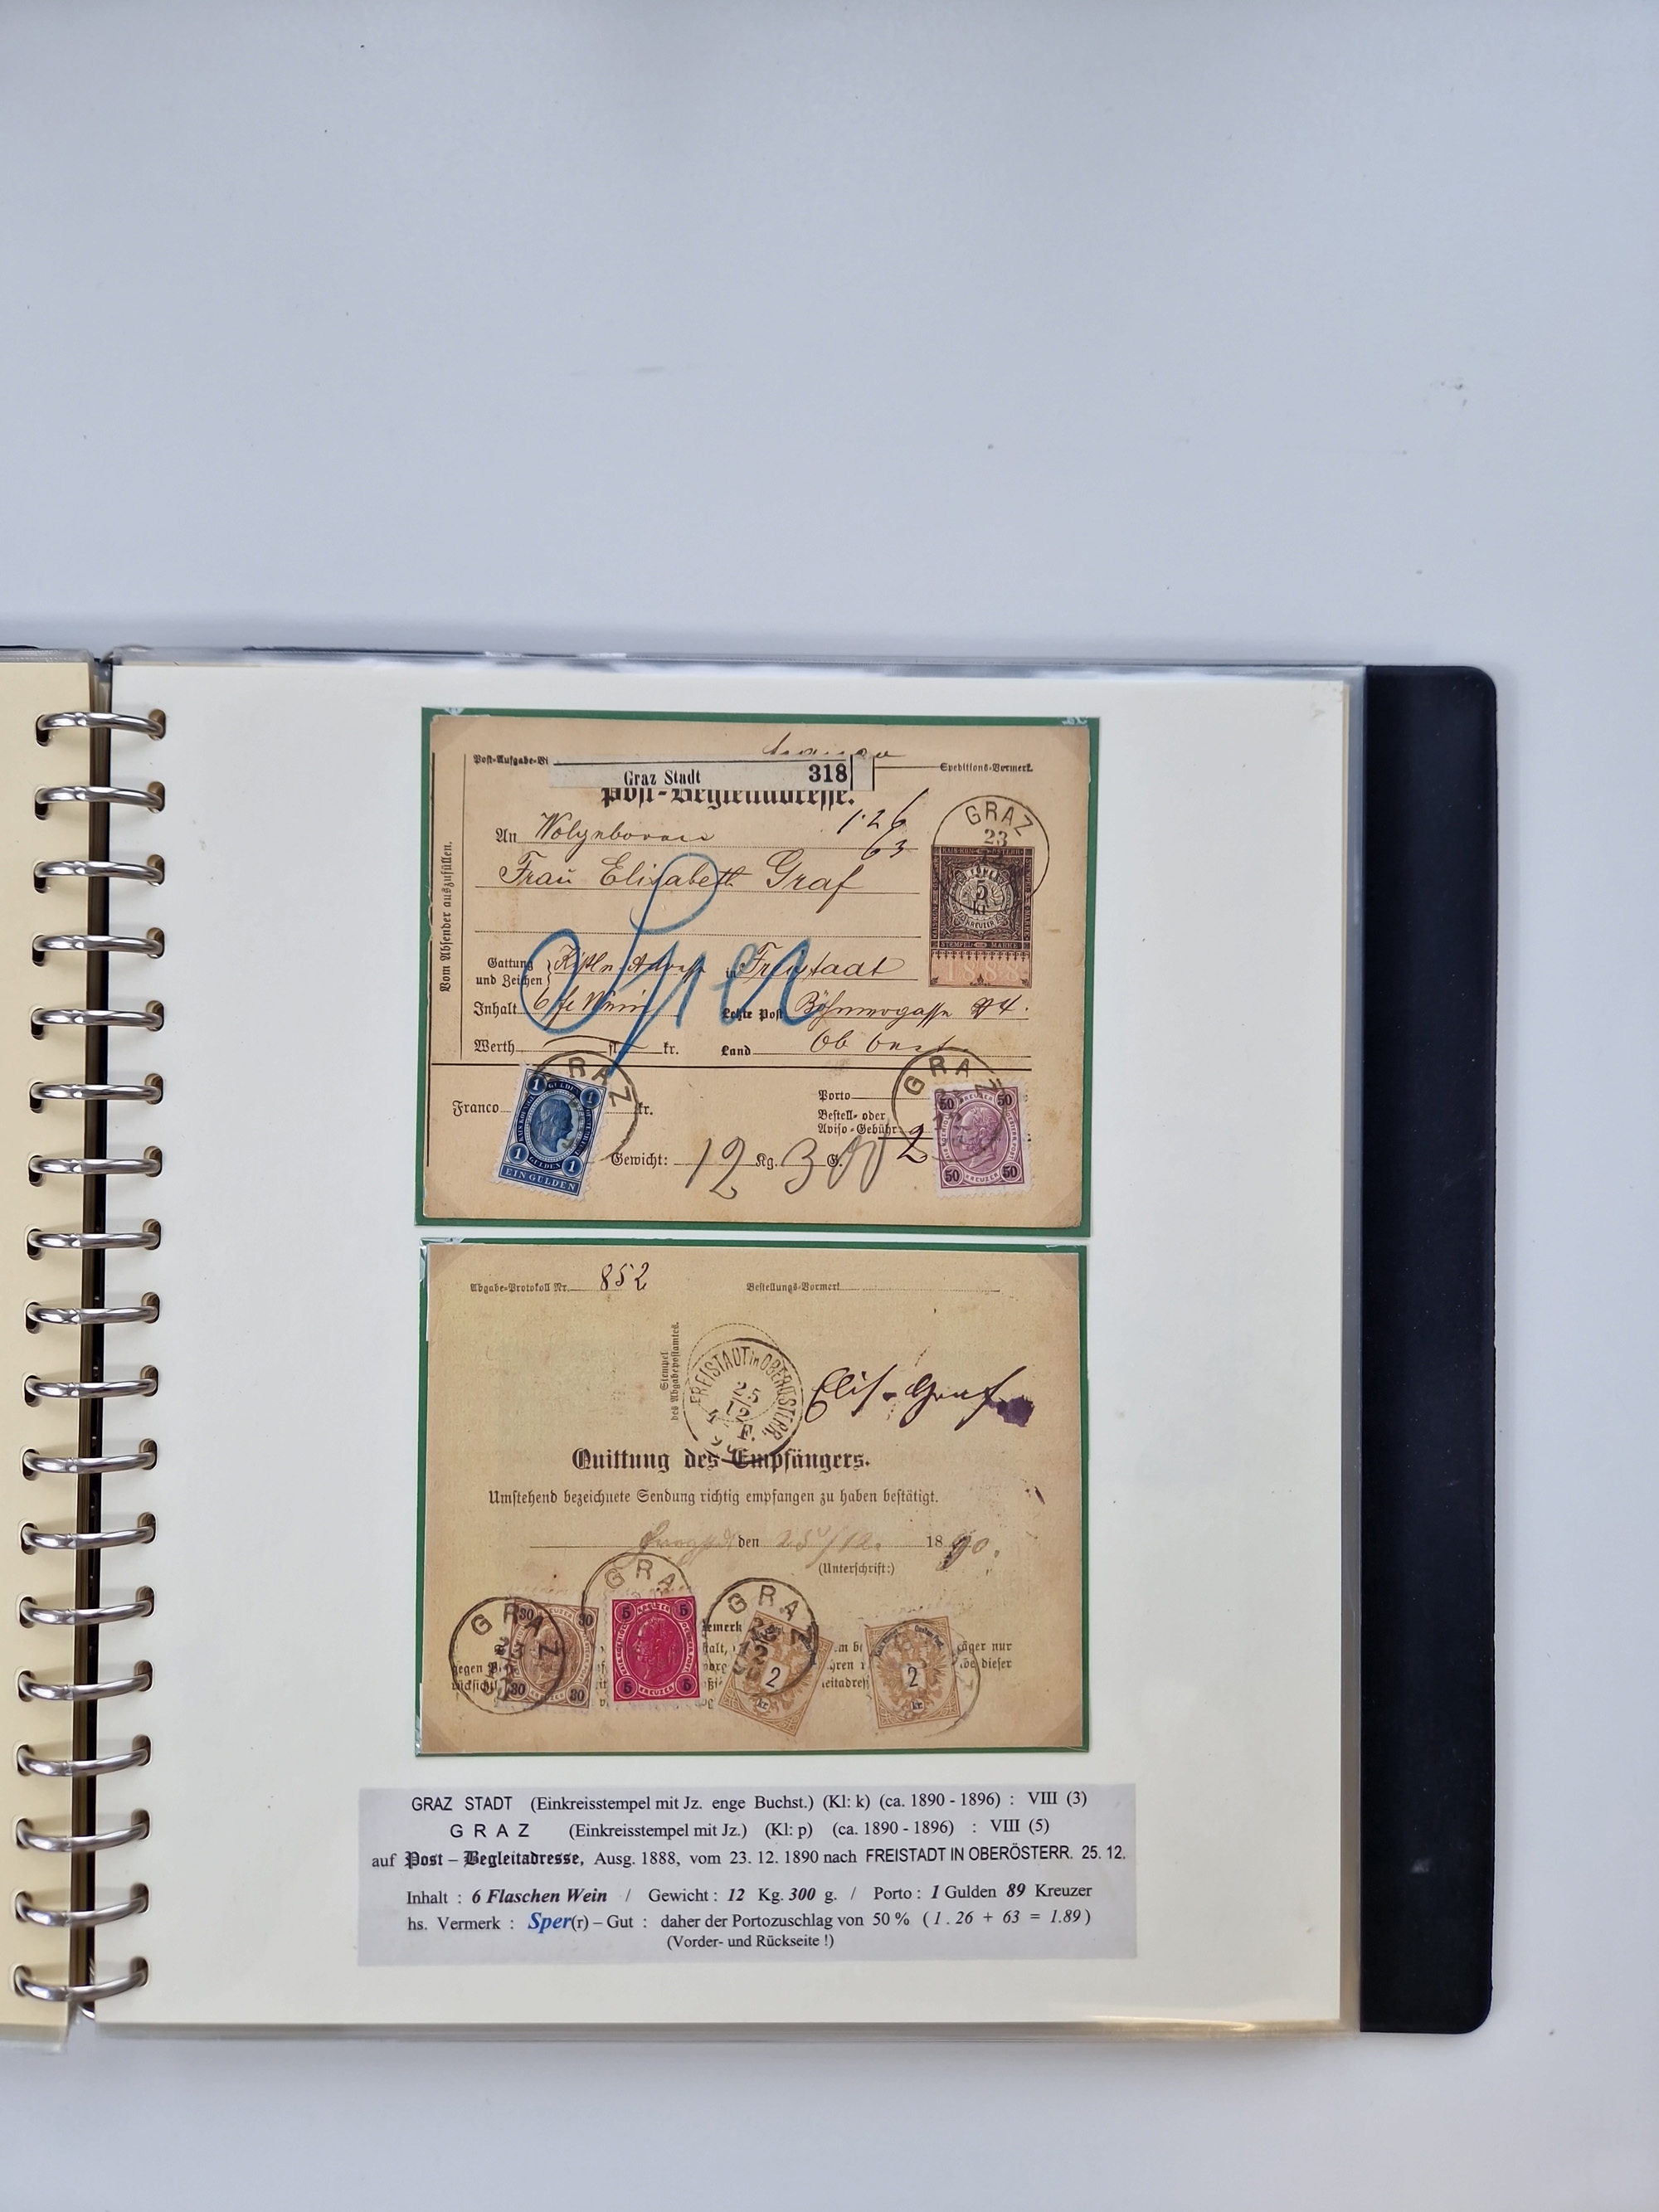 Post-Aufgabe-
Speditions-Vermerk.
Graz Stadt 318
Post-Begleitadresse.
1·26
63
GRAZ
23
An
Frau Elisabeth Graf
Vom Absender auszufüllen.
5
kr
STEMPEL MARKE
1888
Gattung
und Zeichen
in Freistadt
Inhalt 6 fl Wein
Letzte Post
Werth fl. kr.
Land Ob Oest
GRAZ
GRAZ
Franco kr.
Porto
Bestell- oder
Aviso-Gebühr 2
Gewicht: 12 Kg. 300 G.
1 GULDEN 1
1 GULDEN 1
EIN GULDEN
50 KREUZER 50
50 KREUZER 50
Abgabe-Protokoll Nr. 852
Bestellungs-Vormerk
Stempel
des Abgabepostamtes.
FREISTADT in OBERÖSTERR.
Elis. Graf
Quittung des Empfängers.
Umstehend bezeichnete Sendung richtig empfangen zu haben bestätigt.
den 25/12. 1890.
(Unterschrift:)
GRAZ
GRA
GRA
30 KREUZER 30
30 30
5 KREUZER 5
5 KREUZER 5
2
kr.
2
kr.
GRAZ STADT (Einkreisstempel mit Jz. enge Buchst.) (Kl: k) (ca. 1890 - 1896) : VIII (3)
G R A Z (Einkreisstempel mit Jz.) (Kl: p) (ca. 1890 - 1896) : VIII (5)
auf Post – Begleitadresse, Ausg. 1888, vom 23. 12. 1890 nach FREISTADT IN OBERÖSTERR. 25. 12.
Inhalt : 6 Flaschen Wein / Gewicht : 12 Kg. 300 g. / Porto : 1 Gulden 89 Kreuzer
hs. Vermerk : Sper(r) – Gut : daher der Portozuschlag von 50 % ( 1 . 26 + 63 = 1.89 )
(Vorder- und Rückseite !)